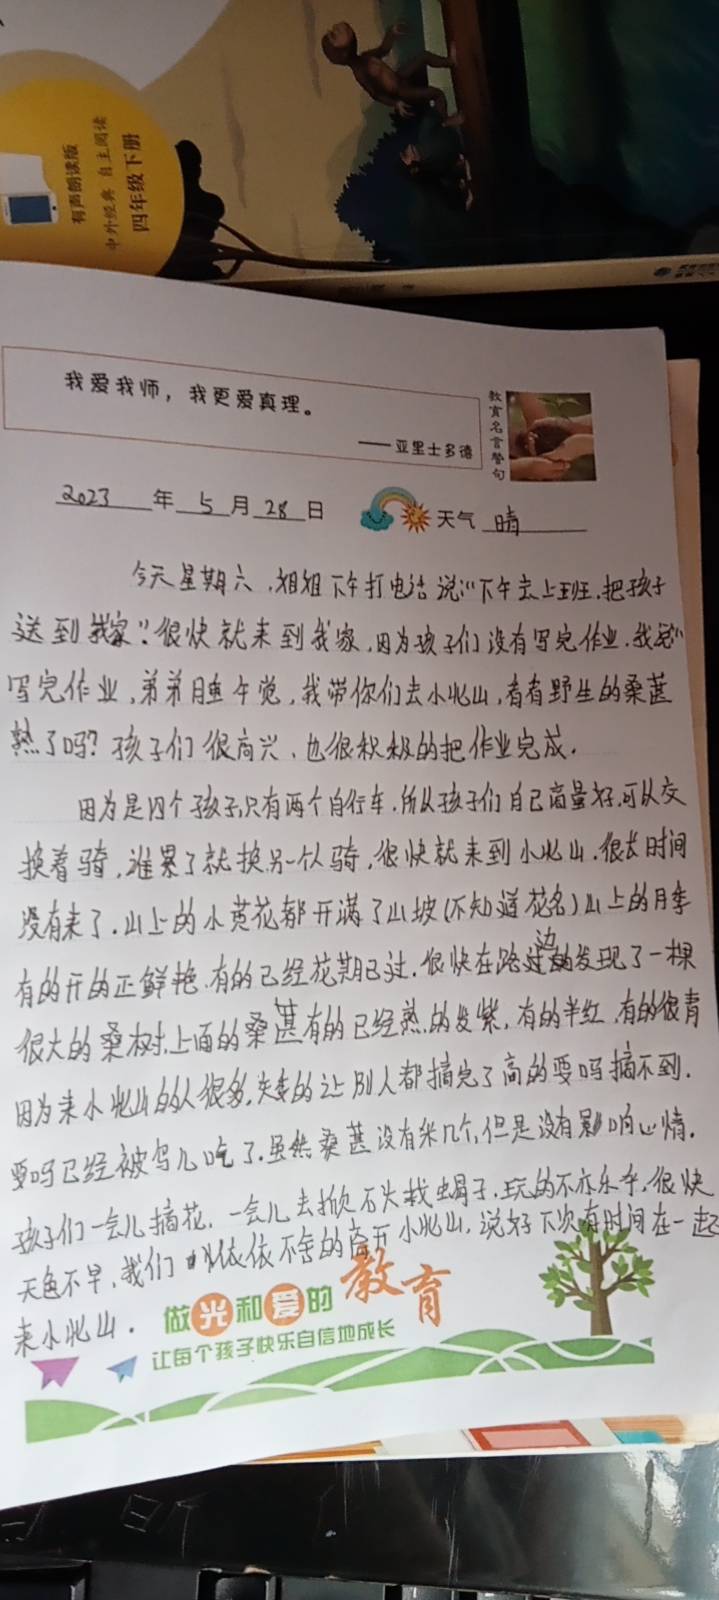 有声朗读版
中外经典 自主阅读
四年级下册
我爱我师，我更爱真理。
——亚里士多德
教育名言警句
2023年5月28日 天气 晴
今天星期六，姐姐下午打电话说：“下午去上班，把孩子
送到我家”。很快就来到我家，因为孩子们没有写完作业，我说“
写完作业，弟弟睡午觉，我带你们去小北山，看看野生的桑葚
熟了吗？孩子们很高兴、也很积极的把作业完成。
因为是四个孩子，只有两个自行车，所以孩子们自己商量好，可以交
换着骑，谁累了就换另一个人骑，很快就来到小北山，很长时间
没有来了，山上的小黄花都开满了山坡（不知道花名）山上的月季
有的开的正鲜艳，有的已经花期已过，很快在路边的发现了一棵
很大的桑树，上面的桑葚有的已经熟的发紫，有的半红，有的很青
因为来小北山的人很多，矢的让别人都摘完了高的要吗摘不到，
要吗已经被鸟儿吃了，虽然桑葚没有采几个，但是没有影响心情。
孩子们一会儿摘花，一会儿去掀石头找蝎子，玩的不亦乐乎，很快
天色不早，我们依依不舍的离开小北山，说好下次有时间在一起
来小北山。
做光和爱的教育
让每个孩子快乐自信地成长